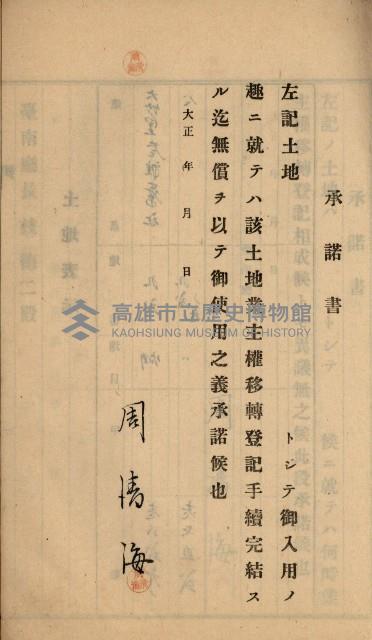 承諾書
左記土地　トシテ御入用ノ
趣ニ就テハ該土地業主權移轉登記手續完結ス
ル迄無償ヲ以テ御使用之義承諾候也
大正　年　月　日
周清海
高雄市立歷史博物館
KAOHSIUNG MUSEUM OF HISTORY